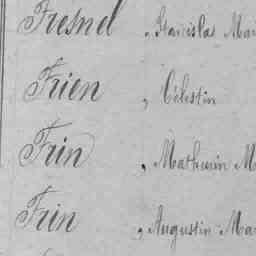 Fresnel , Stanislas Mar
Frien , Célestin
Frin , Mathurin M
Frin , Augustin Mar